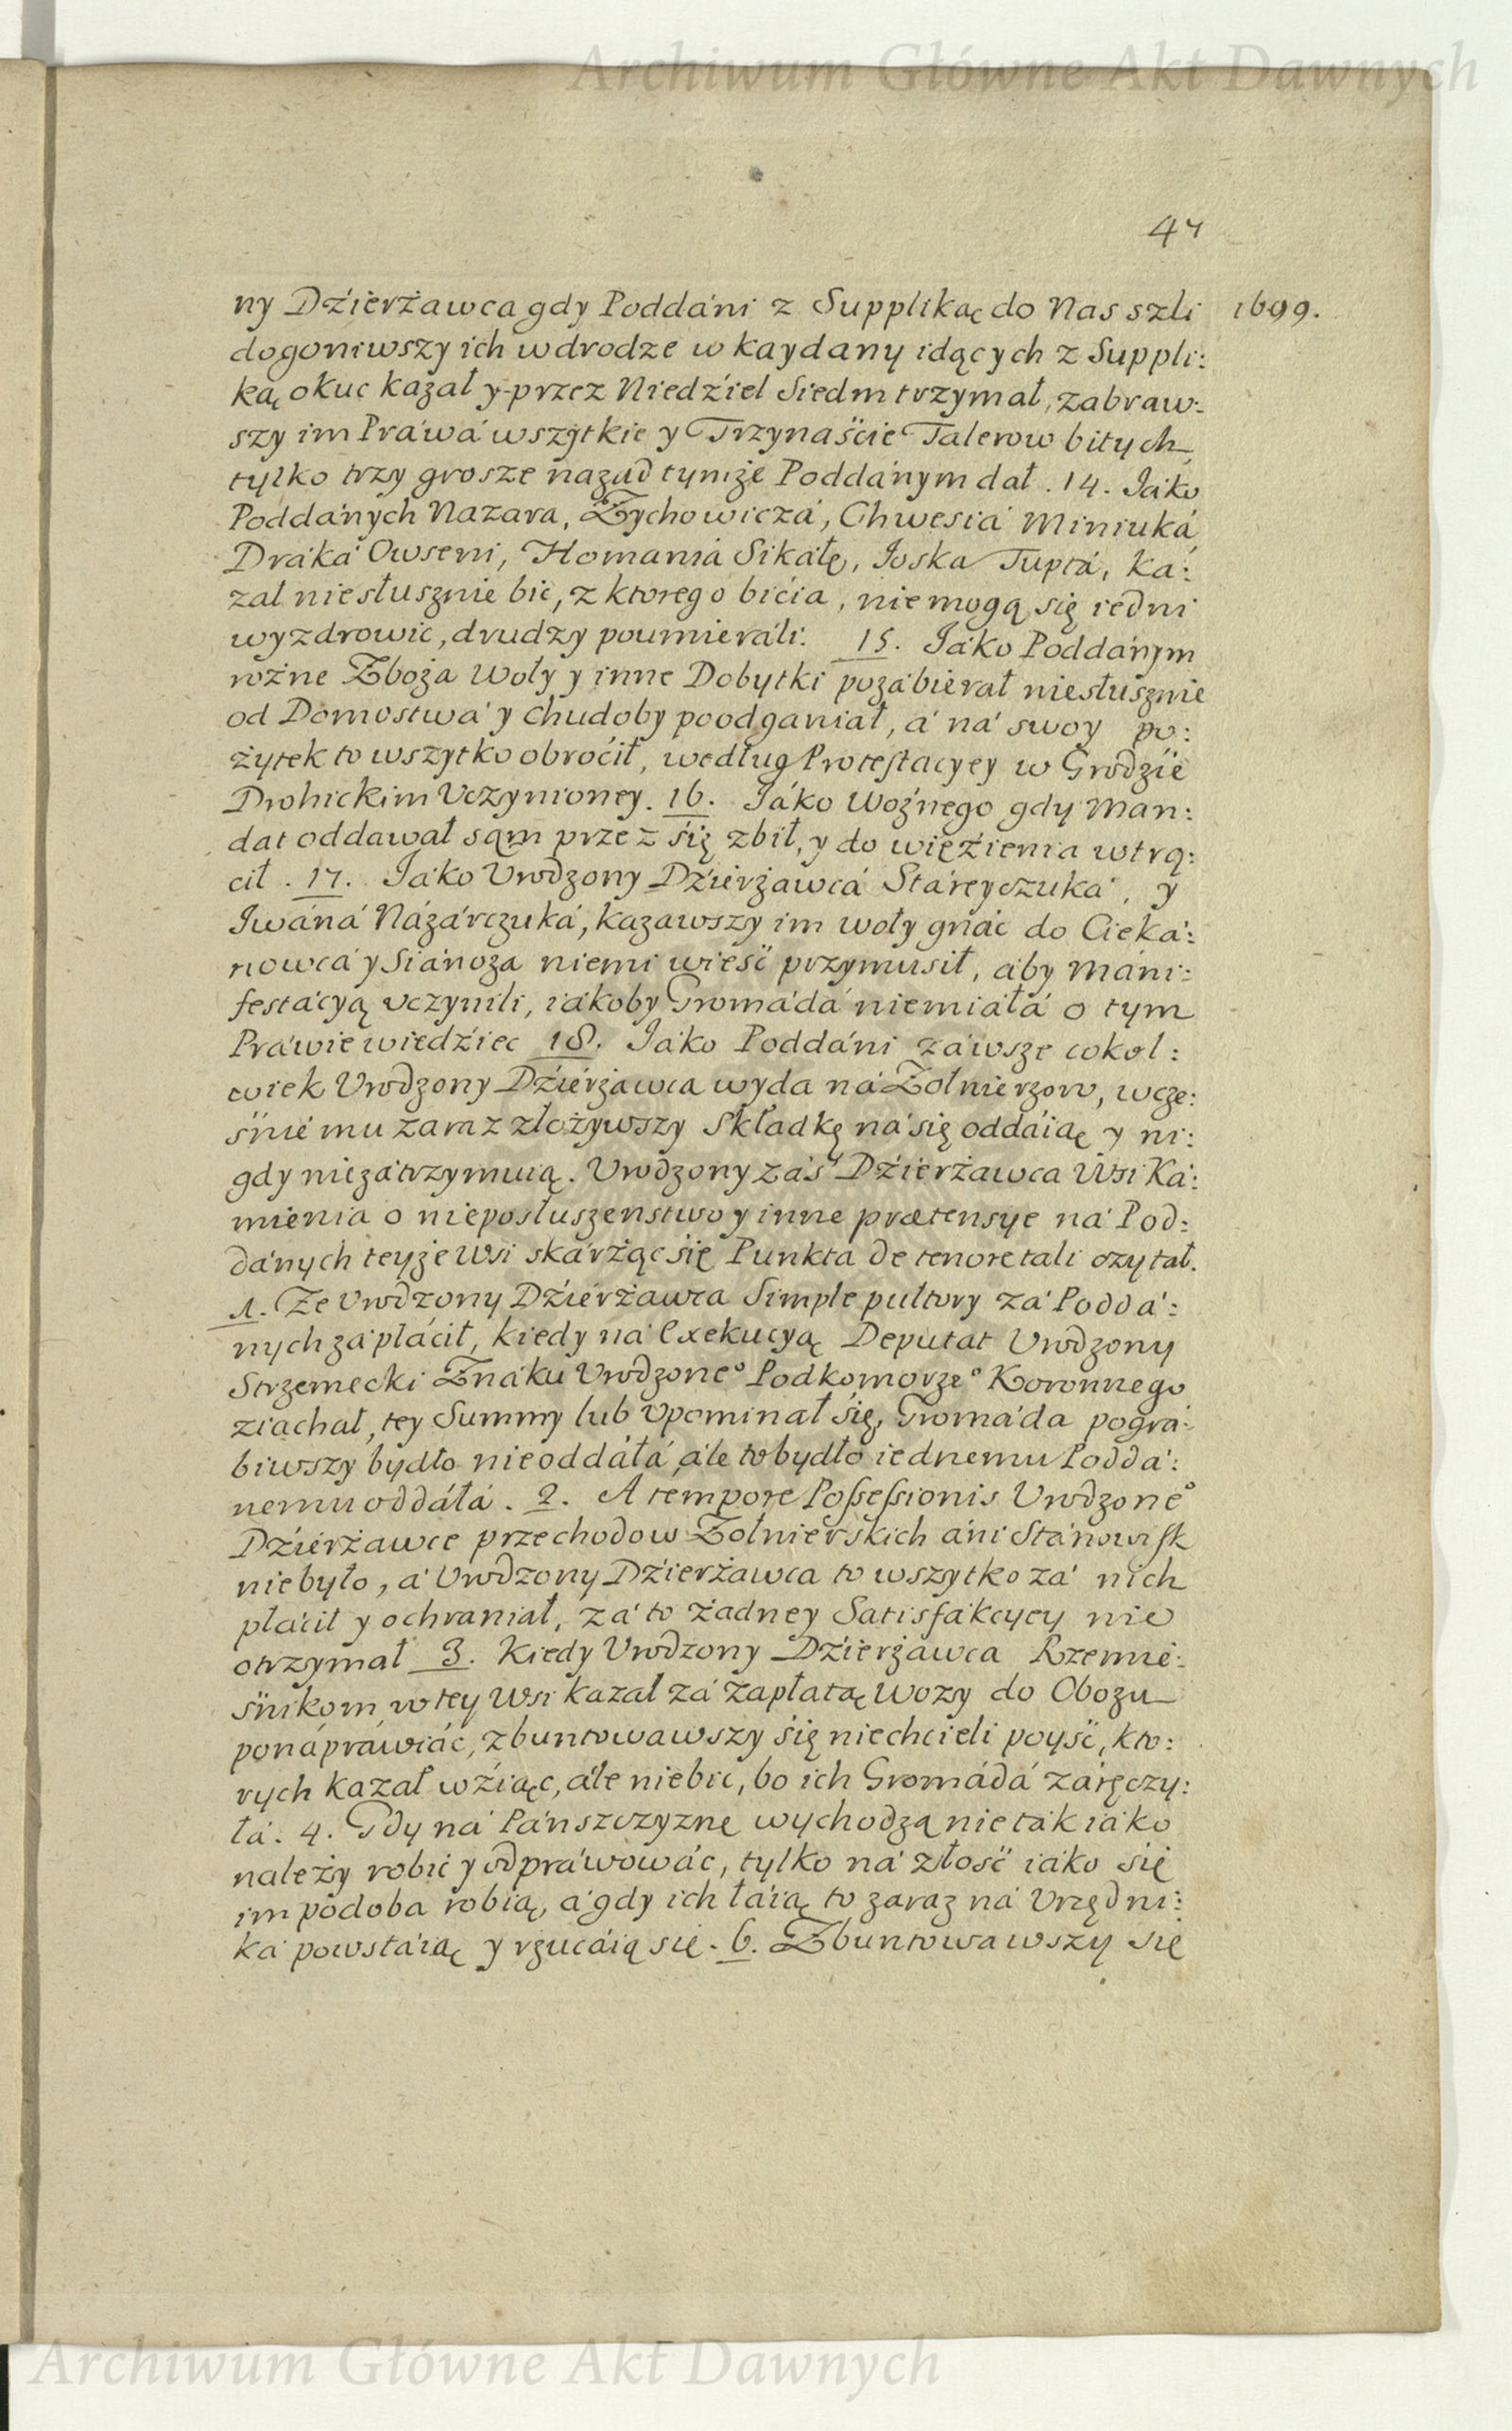 Archiwum Główne Akt Dawnych
47
1699.
ny Dźierżawca gdy Poddáni z Suppliką do Nas szli
dogoniwszy ich wdrodze w kaydany idących z Suppli:
ką okuc kazał y przez Niedźiel Siedm trzymał, zabraw:
szy im Práwá wszytkie y Trzynaśćie Talerow bitych
tylko trzy grosze nazad tymże Poddánym dał. 14. Jáko
Poddánych Nazara, Zychowiczá, Chwesiá Miniuká
Draká Owseni, Homaniá Sikałę, Joska Tuptá, ká:
zał niesłusznie bić, z ktorego bićia, niemogą się iedni
wyzdrowić, drudzy poumieráli. 15. Jáko Poddánym
rożne Zboża Woły y inne Dobytki pozábierał niesłusznie
od Domostwá y chudoby poodganiał, á ná swoy po:
żytek to wszytko obroćił, według Protestacyey w Grodźie
Drohickim Uczynioney. 16. Jáko Woźnego gdy Man:
dat oddawał sąm przez się zbił, y do więźienia wtrą:
cił. 17. Jáko Urodzony Dźierżawcá Stáreyczuká, y
Jwáná Názárczuká, kazawszy im woły gnác do Cieká:
nowcá y Siánoza niemi wieść przymusił, aby Máni:
festácyą uczynili, iákoby Gromádá niemiáłá o tym
Práwie wiedźiec 18. Jáko Poddáni záwsze cokol:
wiek Urodzony Dźierżawca wyda ná Żołnierzow, wcze:
śnie mu zaraz złożywszy składkę ná się oddáią y ni:
gdy niezátrzymuią. Urodzony záś Dźierżawca Wsi Ká:
mienia o nieposłuszenstwo y inne prætensye ná Pod:
dánych teyże Wsi skárżąc się Punkta de tenore tali czytał.
1. Że Urodzony Dźierżawca Simple pułtory zá Poddá:
nych zápłácił, kiedy ná Exekucyą Deputat Urodzony
Strzemecki Znáku Urodzone° Podkomorze° Koronnego
ziachał, tey Summy lub upominał się, Gromáda pográ:
biwszy bydło nieoddáłá, ále to bydło iednemu Poddá:
nemu oddáłá. 2. A tempore Possessionis Urodzone°
Dźierżawce przechodow Żołnierskich áni Stánowisk
niebyło, á Urodzony Dźierżawca to wszytko zá nich
płáćił y ochraniał, zá to żadney Satisfákcyey nie
otrzymał 3. Kiedy Urodzony Dźierżawca Rzemie:
śnikom w tey Wsi kazał zá zapłatą Wozy do Obozu
ponápráwiác, zbuntowawszy się niechcieli poyść, kto:
rych kazał wźiąc, ále niebić, bo ich Gromádá záręczy:
łá. 4. Gdy ná Pánszczyznę wychodzą nie ták iáko
należy robić y odpráwowác, tylko ná złość iáko się
im podoba robią, á gdy ich łáią to zaraz ná Urzędni:
ká powstáią y rzucáią się. 6. Zbuntowawszy się
Archiwum Główne Akt Dawnych